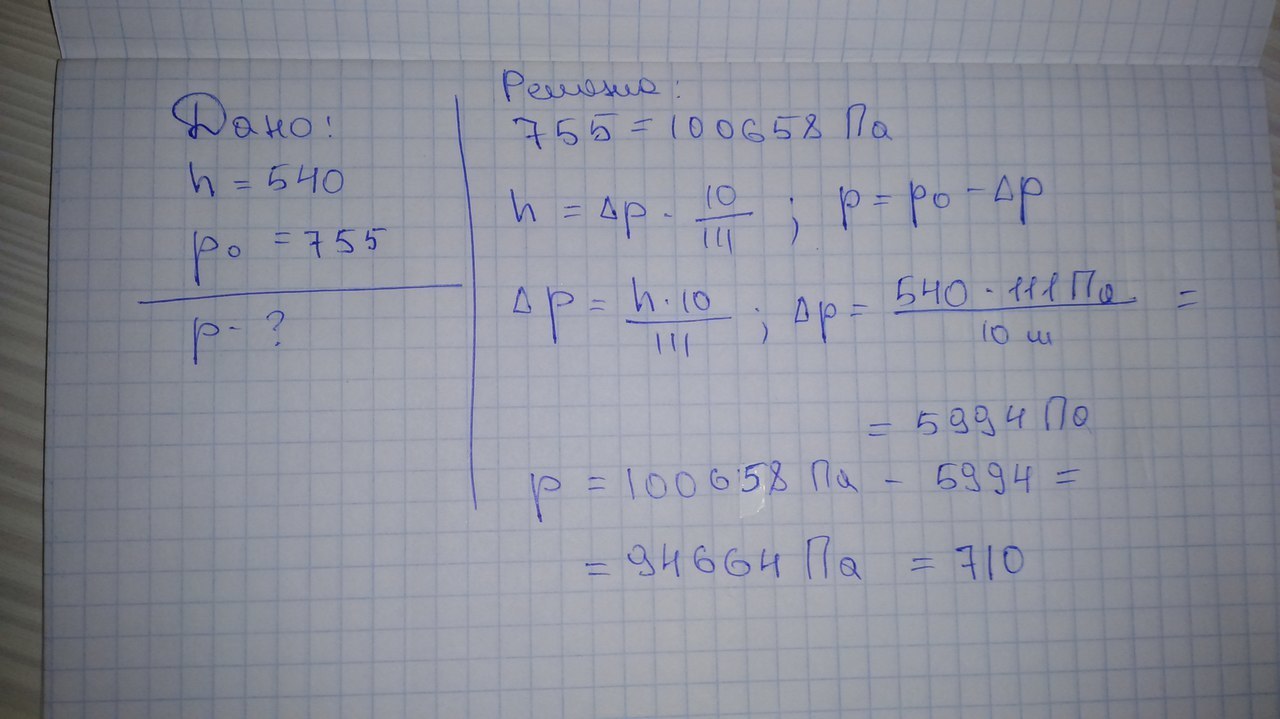 Дано:
h = 540
p₀ = 755
p - ?
Решение:
755 = 100658 Па
h = Δp · 10/111 ; p = p₀ - Δp
Δp = h·10/111 ; Δp = 540 · 111 Па/10 м =
= 5994 Па
p = 100658 Па - 5994 =
= 94664 Па = 710